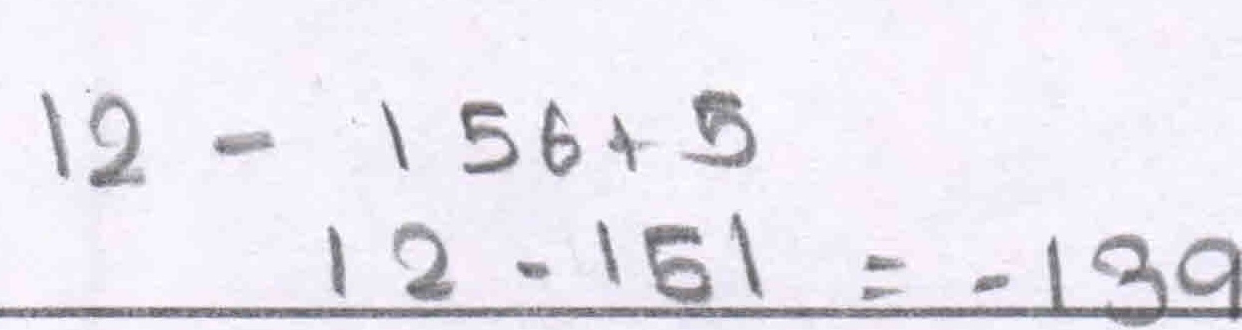 12 - 156+5
12 - 151 = -139